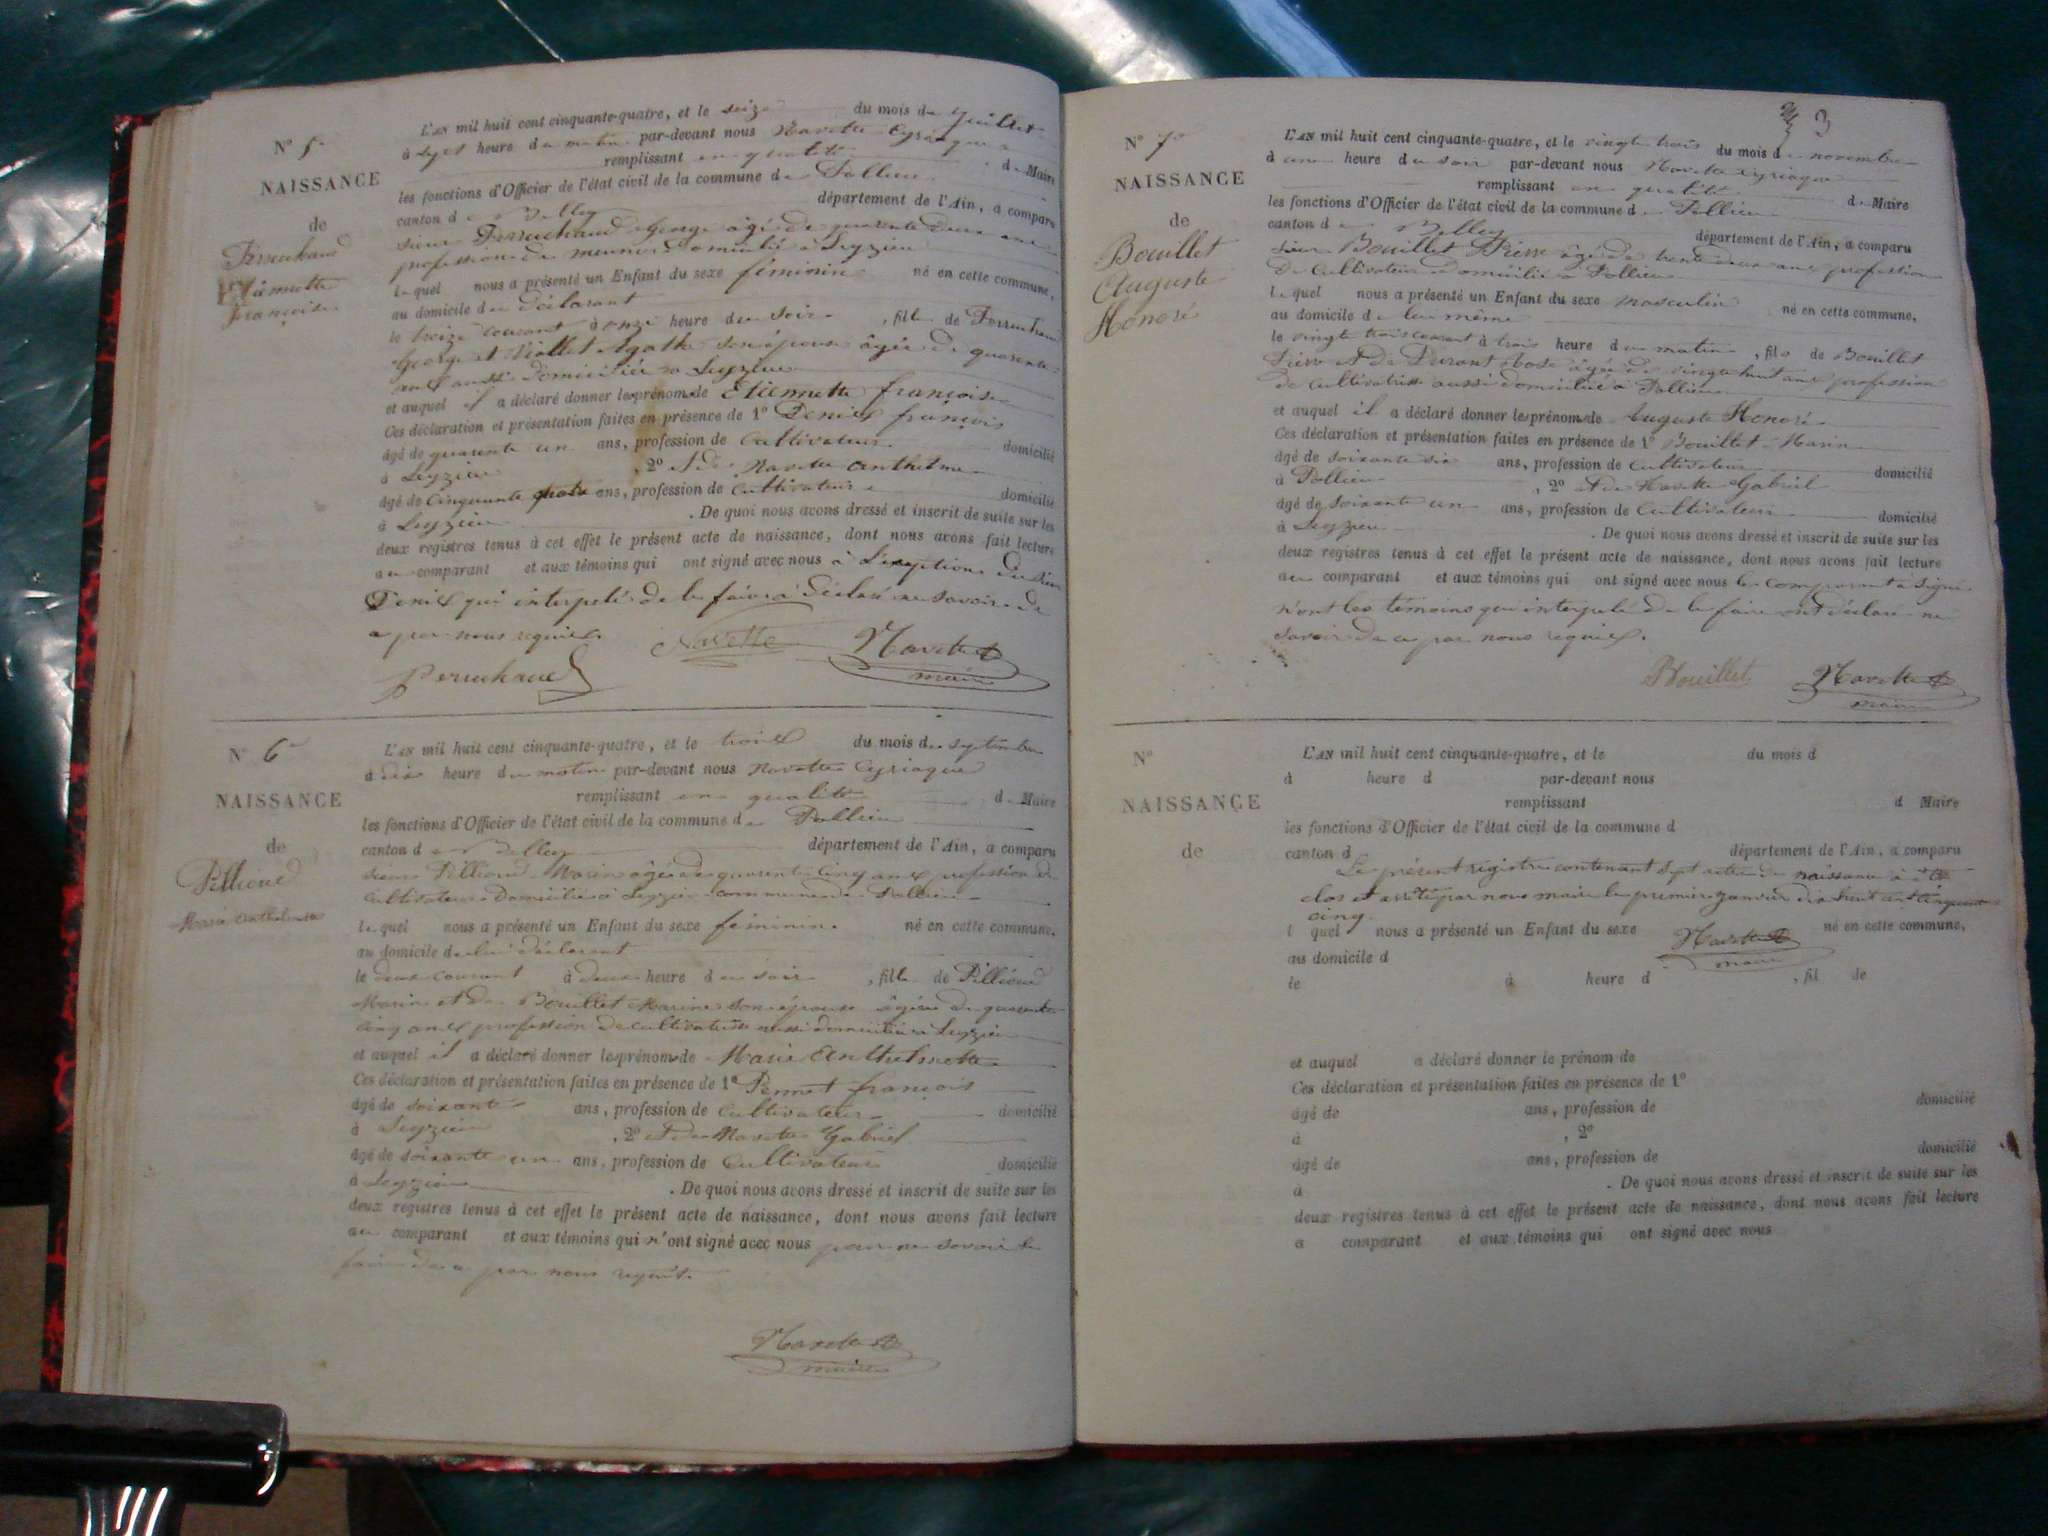 N° 5
NAISSANCE
de
Perruchaud
Etiennette
françoise
L'AN mil huit cent cinquante-quatre, et le seize du mois de juillet
à sept heure du matin par-devant nous Navette Cyriaque
remplissant en qualité de Maire
les fonctions d'Officier de l'état civil de la commune de Pollieu
canton de Belley département de l'Ain, a comparu
sieur Perruchaud George âgé de quarante deux ans
profession de meunier domicilié à Leyzieu
lequel nous a présenté un Enfant du sexe féminin né en cette commune,
au domicile du déclarant
le treize courant à onze heure du soir, fille de Perruchaud
George et Viollet Agathe son épouse âgée de quarante
ans aussi domiciliée à Leyzieu
et auquel il a déclaré donner les prénoms de Etiennette françoise
Ces déclaration et présentation faites en présence de 1° Deniel françois
âgé de quarante un ans, profession de Cultivateur domicilié
à Leyzieu, 2° et de Navette anthelme
âgé de Cinquante quatre ans, profession de Cultivateur domicilié
à Leyzieu. De quoi nous avons dressé et inscrit de suite sur les
deux registres tenus à cet effet le présent acte de naissance, dont nous avons fait lecture
au comparant et aux témoins qui ont signé avec nous à l'exeption du sieur
Deniel qui interpelé de le faire à déclaré ne savoir de
ce par nous requis.
Navette Navette
maire
Perruchaud
N° 6
NAISSANCE
de
Pillioud
Marie Anthelmette
L'AN mil huit cent cinquante-quatre, et le trois du mois de septembre
à dix heure du matin par-devant nous Navette Cyriaque
remplissant en qualité de Maire
les fonctions d'Officier de l'état civil de la commune de Pollieu
canton de Belley département de l'Ain, a comparu
sieur Pillioud Marin âgé de quarante cinq ans profession de
cultivateur domicilié à Leyzieu commune de Pollieu
lequel nous a présenté un Enfant du sexe féminin né en cette commune,
au domicile de lui déclarant
le deux courant à deux heure du soir, fille de Pillioud
Marin et de Bouillet Marine son épouse âgée de quarante
cinq ans profession de cultivatrice aussi domiciliée à Leyzieu
et auquel il a déclaré donner les prénoms de Marie Anthelmette
Ces déclaration et présentation faites en présence de 1° Pernet françois
âgé de soixante ans, profession de Cultivateur domicilié
à Leyzieu, 2° et de Navette Gabriel
âgé de soixante un ans, profession de Cultivateur domicilié
à Leyzieu. De quoi nous avons dressé et inscrit de suite sur les
deux registres tenus à cet effet le présent acte de naissance, dont nous avons fait lecture
au comparant et aux témoins qui n'ont signé avec nous pour ne savoir le
faire de ce par nous requis.
Navette
maire
3
N° 7
NAISSANCE
de
Bouillet
Auguste
Honoré
L'AN mil huit cent cinquante-quatre, et le vingt trois du mois de novembre
à une heure du soir par-devant nous Navette Cyriaque
remplissant en qualité de Maire
les fonctions d'Officier de l'état civil de la commune de Pollieu
canton de Belley département de l'Ain, a comparu
sieur Bouillet Pierre âgé de trente deux ans profession
de Cultivateur domicilié à Pollieu
lequel nous a présenté un Enfant du sexe masculin né en cette commune,
au domicile de lui même
le vingt trois courant à trois heure du matin, fils de Bouillet
Pierre et de Durant Rose âgée de vingt huit ans profession
de cultivatrice aussi domiciliée à Pollieu
et auquel il a déclaré donner les prénoms de Auguste Honoré
Ces déclaration et présentation faites en présence de 1° Bouillet Marin
âgé de soixante six ans, profession de Cultivateur domicilié
à Pollieu, 2° et de Navette Gabriel
âgé de soixante un ans, profession de Cultivateur domicilié
à Leyzieu. De quoi nous avons dressé et inscrit de suite sur les
deux registres tenus à cet effet le présent acte de naissance, dont nous avons fait lecture
au comparant et aux témoins qui ont signé avec nous le comparant a signé
n'ont les témoins qui interpelé de le faire ont déclaré ne
savoir de ce par nous requis.
PBouillet Navette
maire
N°
NAISSANCE
de
L'AN mil huit cent cinquante-quatre, et le du mois d
à heure d par-devant nous
remplissant d Maire
les fonctions d'Officier de l'état civil de la commune d
canton d département de l'Ain, a comparu
Le présent registre contenant sept actes de naissance à été
clos et arrêté par nous maire le premier janvier dix huit cent cinquante
cinq.
l quel nous a présenté un Enfant du sexe né en cette commune,
Navette
maire
au domicile d
le à heure d, fil de
et auquel a déclaré donner le prénom de
Ces déclaration et présentation faites en présence de 1°
âgé de ans, profession de domicilié
à, 2°
âgé de ans, profession de domicilié
à. De quoi nous avons dressé et inscrit de suite sur les
deux registres tenus à cet effet le présent acte de naissance, dont nous avons fait lecture
a comparant et aux témoins qui ont signé avec nous